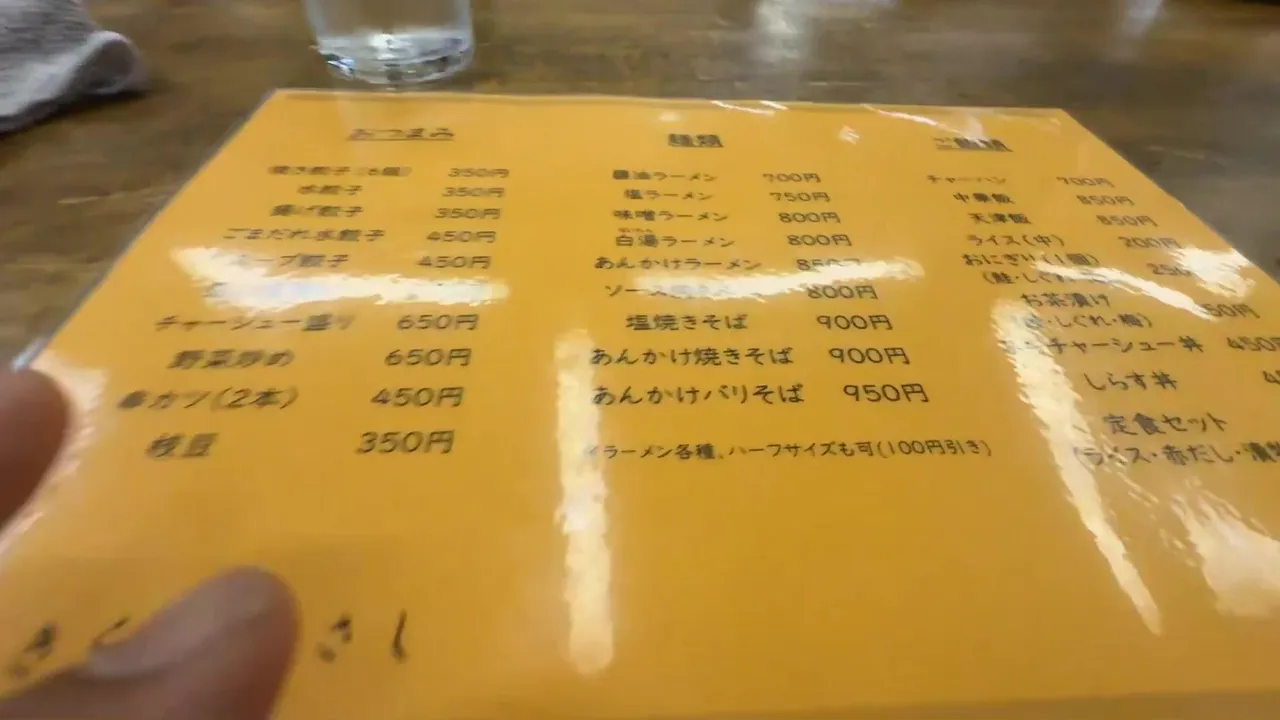 おつまみ
焼き餃子(6個) 350円
水餃子 350円
揚げ餃子 350円
ごまだれ水餃子 450円
スープ餃子 450円
チャーシュー盛り 650円
野菜炒め 650円
串カツ(2本) 450円
枝豆 350円
麺類
醤油ラーメン 700円
塩ラーメン 750円
味噌ラーメン 800円
白湯ラーメン 800円
あんかけラーメン 850円
ソース焼きそば 800円
塩焼きそば 900円
あんかけ焼きそば 900円
あんかけバリそば 950円
ラーメン各種、ハーフサイズも可(100円引き)
ご飯類
チャーハン 700円
中華飯 850円
天津飯 850円
ライス(中) 200円
おにぎり(1個) 250
(鮭・しぐれ・
お茶漬け 50円
・しぐれ・梅)
チャーシュー丼 450円
しらす丼
定食セット
(ライス・赤だし・漬物